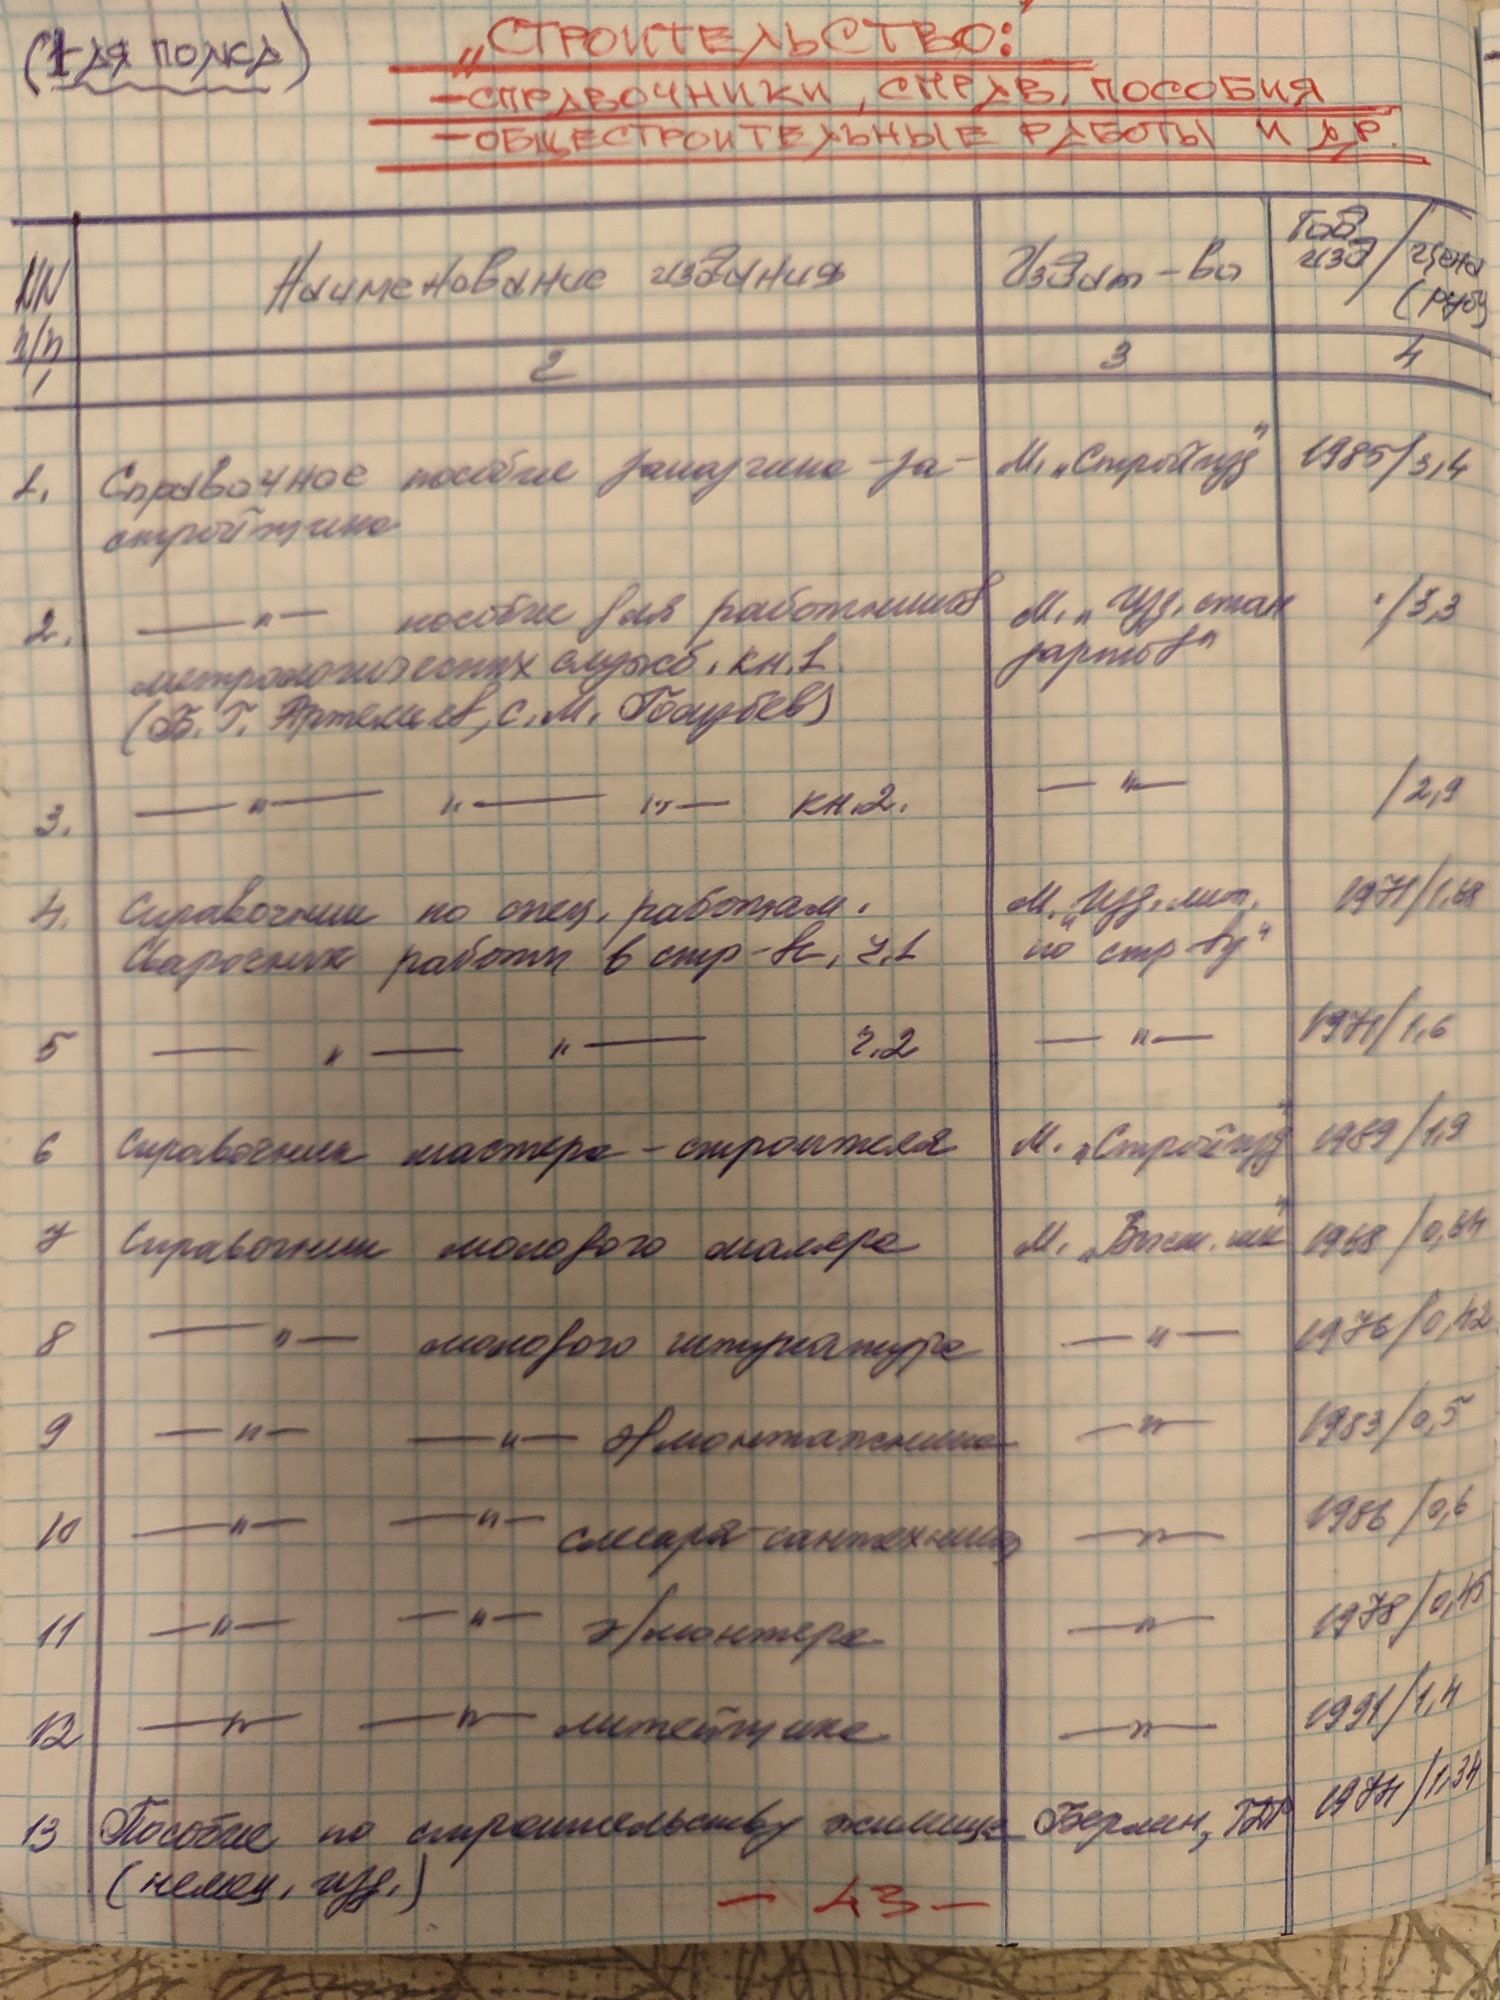 (1-ая полка)
„СТРОИТЕЛЬСТВО:
-СПРАВОЧНИКИ, СПРАВ. ПОСОБИЯ
-ОБЩЕСТРОИТЕЛЬНЫЕ РАБОТЫ И ДР.
NN п/п Наименование издания Издат-во Год изд / Цена (руб)
1 2 3 4
1. Справочное пособие заказчика-за- М. „Стройизд" 1985/3,4
стройщика
2. —"— пособие для работников М. „Изд. стан /3,3
метрологических служб. кн.1. дартов"
(Б. Г. Артемьев, С. М. Голубев)
3. —"— "— "— кн.2. —"— /2,9
4. Справочник по спец. работам. М. „Изд. лит. 1971/1,68
Сварочные работы в стр-ве, ч.1 по стр-ву"
5 — "— "— ч.2 —"— 1971/1,6
6 Справочник мастера-строителя М. „Стройизд" 1989/1,9
7 Справочник молодого маляра М. „Высш. шк" 1968/0,64
8 —"— молодого штукатура —"— 1976/0,42
9 —"— —"— э/монтажника —"— 1983/0,5
10 —"— —"— слесаря-сантехника —"— 1986/0,6
11 —"— —"— э/монтера —"— 1978/0,45
12 —"— —"— литейщика —"— 1991/1,4
13 Пособие по строительству жилища Берлин, ГДР 1977/1,34
(немец. изд.)
- 43 -